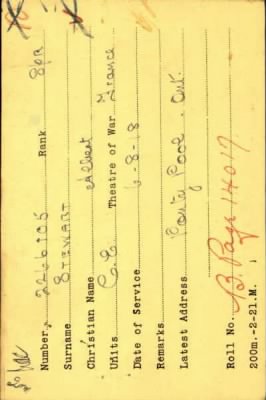 Number 2266705 Rank Spr
Surname STEWART
Christian Name Albert
Units C.E. Theatre of War France
Date of Service 6-8-18
Remarks
Latest Address Ont.
Roll No. B. Page 14017
200m.-2-21.M.